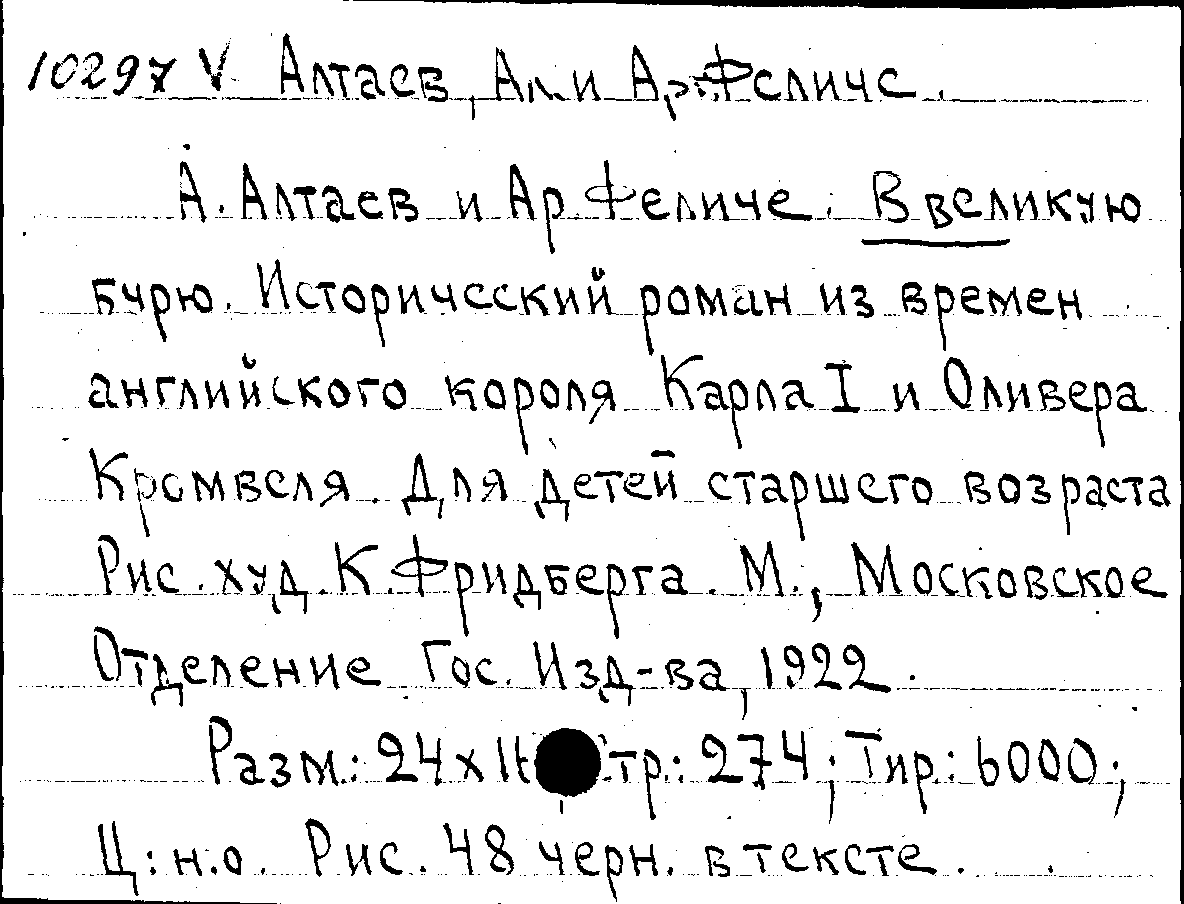 10297 V Алтаев, Ал. и Ар. Феличе.
А. Алтаев и Ар. Феличе. В великую
бурю. Исторический роман из времен
английского короля Карла I и Оливера
Кромвеля. Для детей старшего возраста
Рис. худ. К. Фридберга. М., Московское
Отделение Гос. Изд-ва, 1922.
Разм.: 24 x тр.: 274; Тир.: 6000;
Ц: н.о. Рис. 48 черн. в тексте.